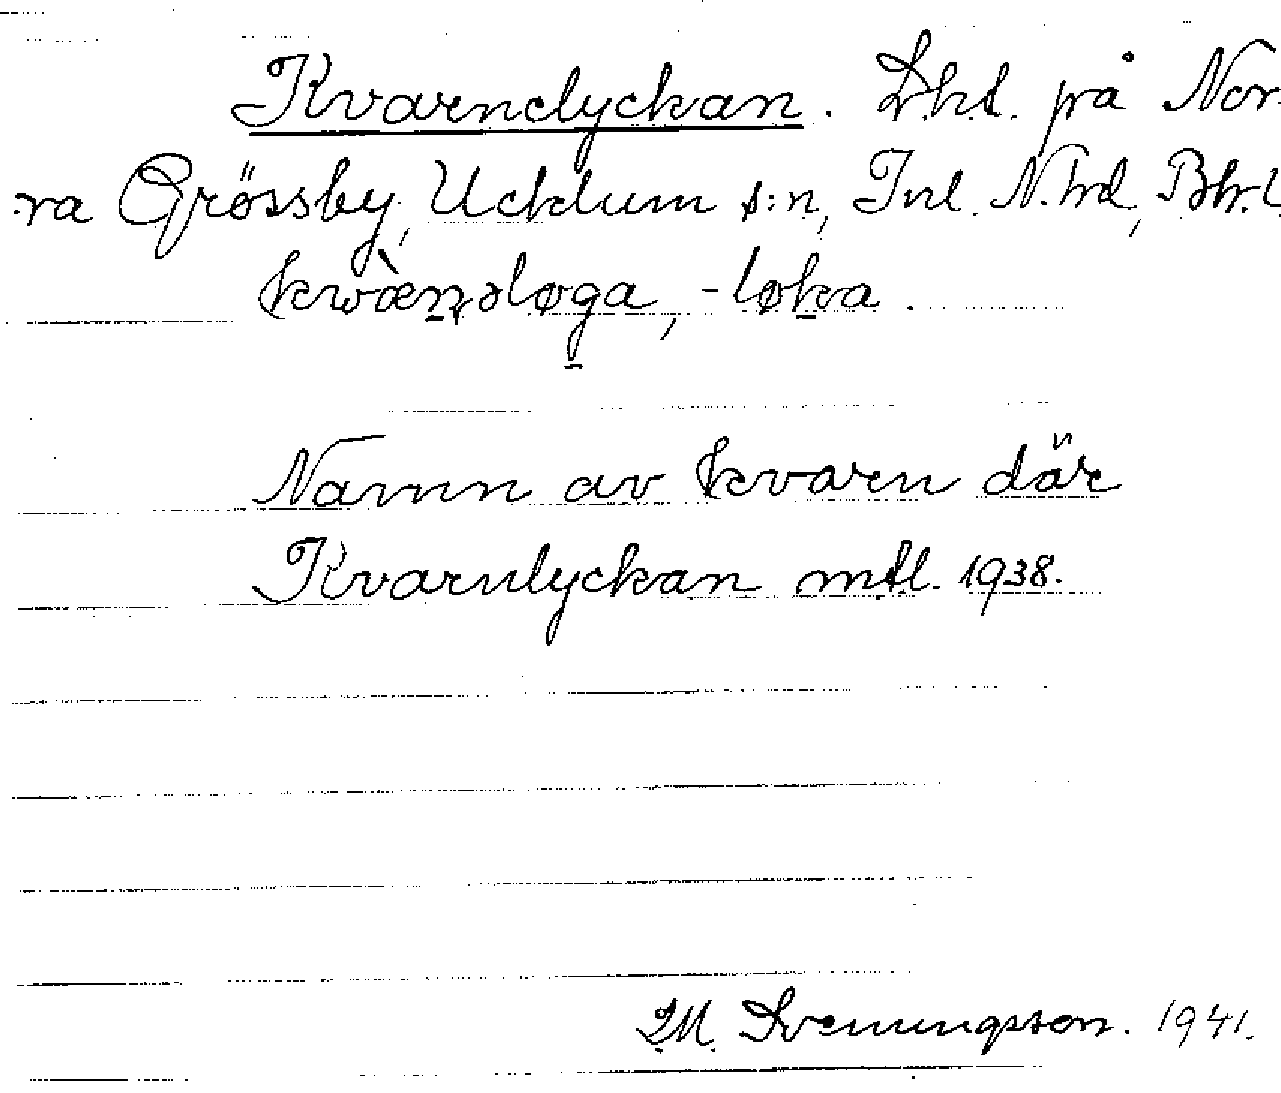 Kvarnelyckan. Lht. på Nor-
ra Grössby, Ucklum s:n, Inl. N. hd, Bh. l.
kwæ̀nəløga, -løka.
Namn av kvarn där
Kvarnlyckan mtl. 1938.
M. Svenungsson. 1941.